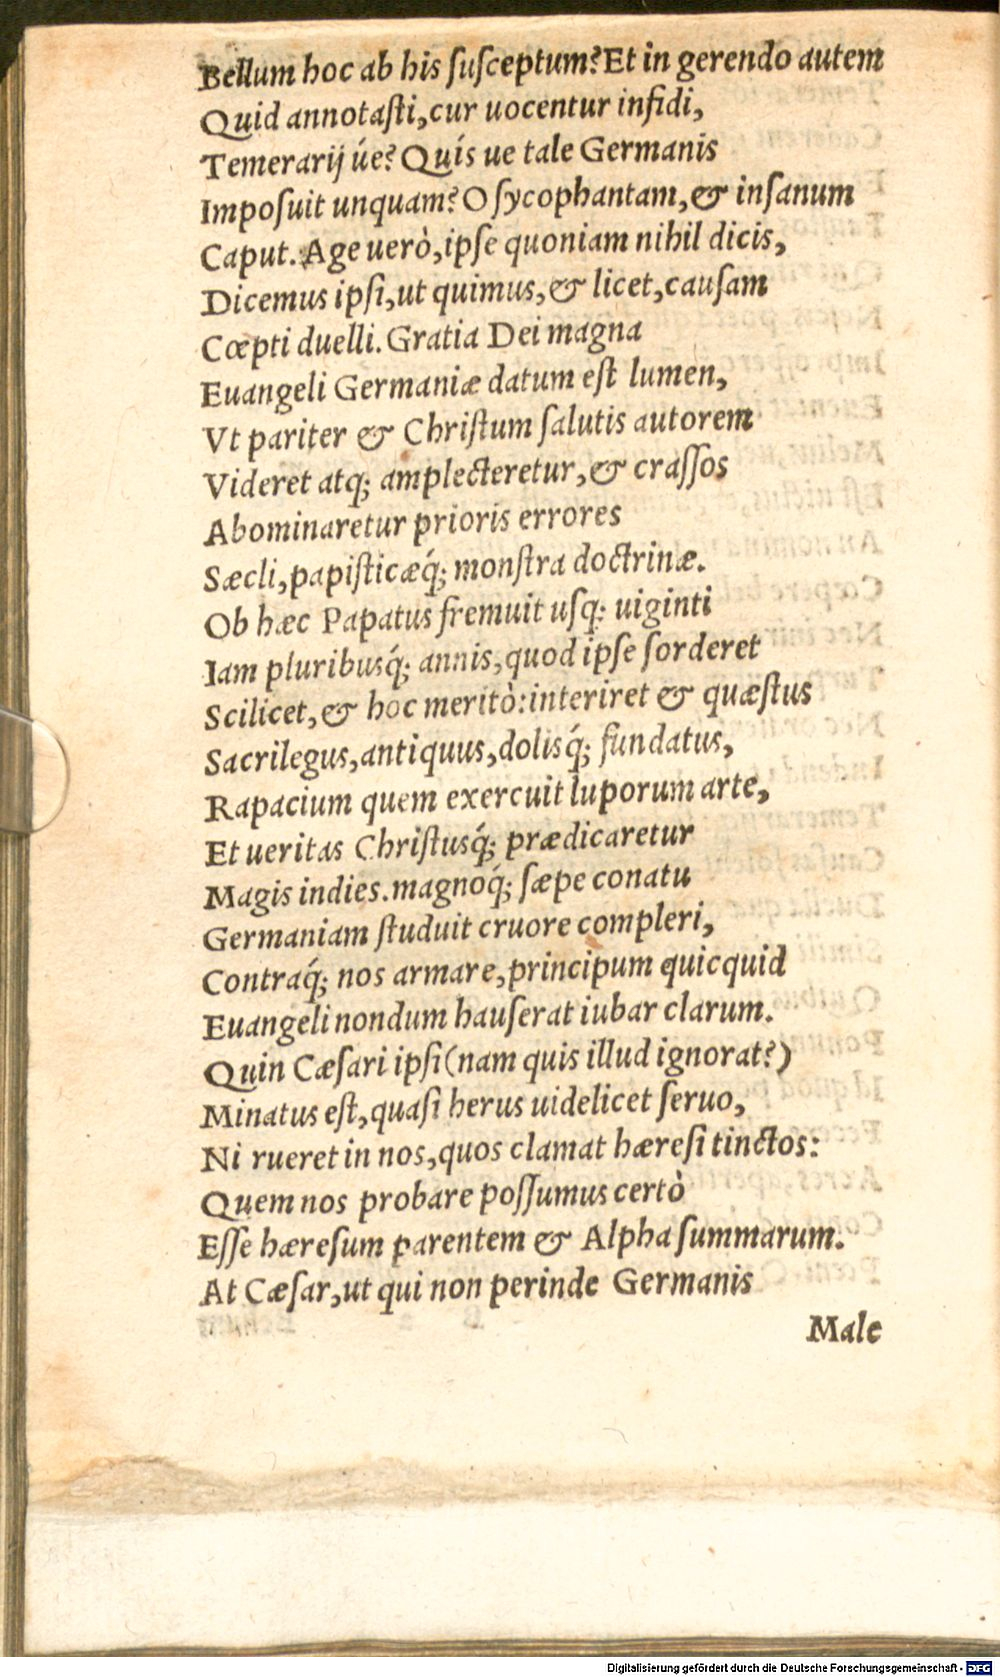 Bellum hoc ab his ſuſceptum? Et in gerendo autem
Quid annotaſti, cur uocentur infidi,
Temerarij úe? Quís ue tale Germanis
Impoſuit unquam? O ſycophantam, & inſanum
Caput. Age uerò, ipſe quoniam nihil dicis,
Dicemus ipſi, ut quimus, & licet, cauſam
Cœpti duelli. Gratia Dei magna
Euangeli Germaniæ datum eſt lumen,
Vt pariter & Chriſtum ſalutis autorem
Videret atq; amplecteretur, & craſſos
Abominaretur prioris errores
Sæcli, papiſticæq́; monſtra doctrinæ.
Ob hæc Papatus fremuit uſq; uiginti
Iam pluribusq́; annis, quod ipſe ſorderet
Scilicet, & hoc meritò: interiret & quæſtus
Sacrilegus, antiquus, dolisq́; fundatus,
Rapacium quem exercuit luporum arte,
Et ueritas Chriſtusq́; prædicaretur
Magis indies. magnoq́; ſæpe conatu
Germaniam ſtuduit cruore compleri,
Contraq́; nos armare, principum quicquid
Euangeli nondum hauſerat iubar clarum.
Quin Cæſari ipſi (nam quis illud ignorat?)
Minatus eſt, quaſi herus uidelicet ſeruo,
Ni rueret in nos, quos clamat hæreſi tinctos:
Quem nos probare poſſumus certò
Eſſe hæreſum parentem & Alpha ſummarum.
At Cæſar, ut qui non perinde Germanis
Male
Digitalisierung gefördert durch die Deutsche Forschungsgemeinschaft - DFG